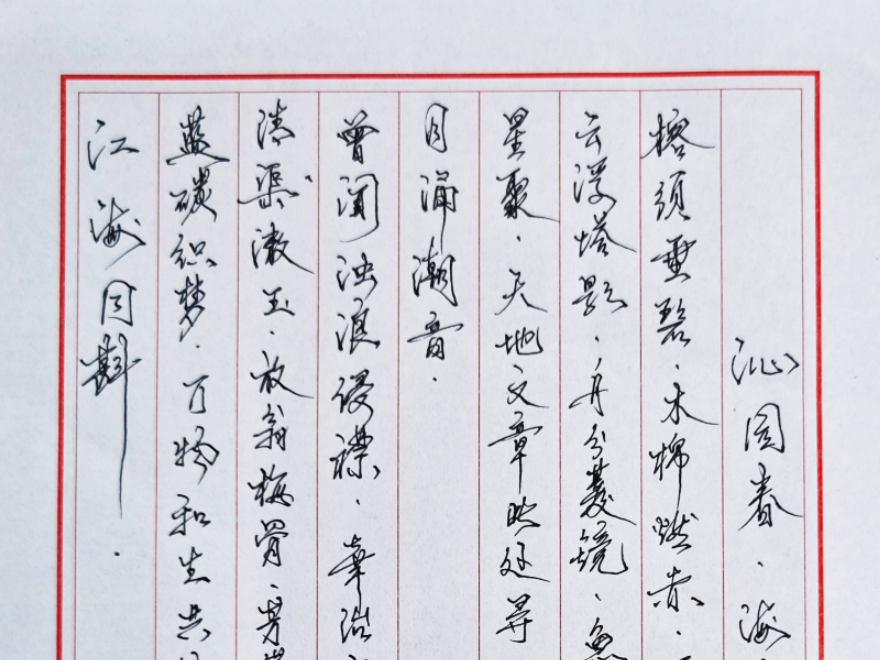 沁园春·海
榕须垂碧·木棉燃赤·
云浮塔影·舟分菱镜·鱼
星聚·天地文章映廷寻
月涌潮音·
曾闻浊浪侵襟·幸治
清渠漱玉·放翁梅骨·芳
蓝碳织梦·万物和生共
江海同斟·